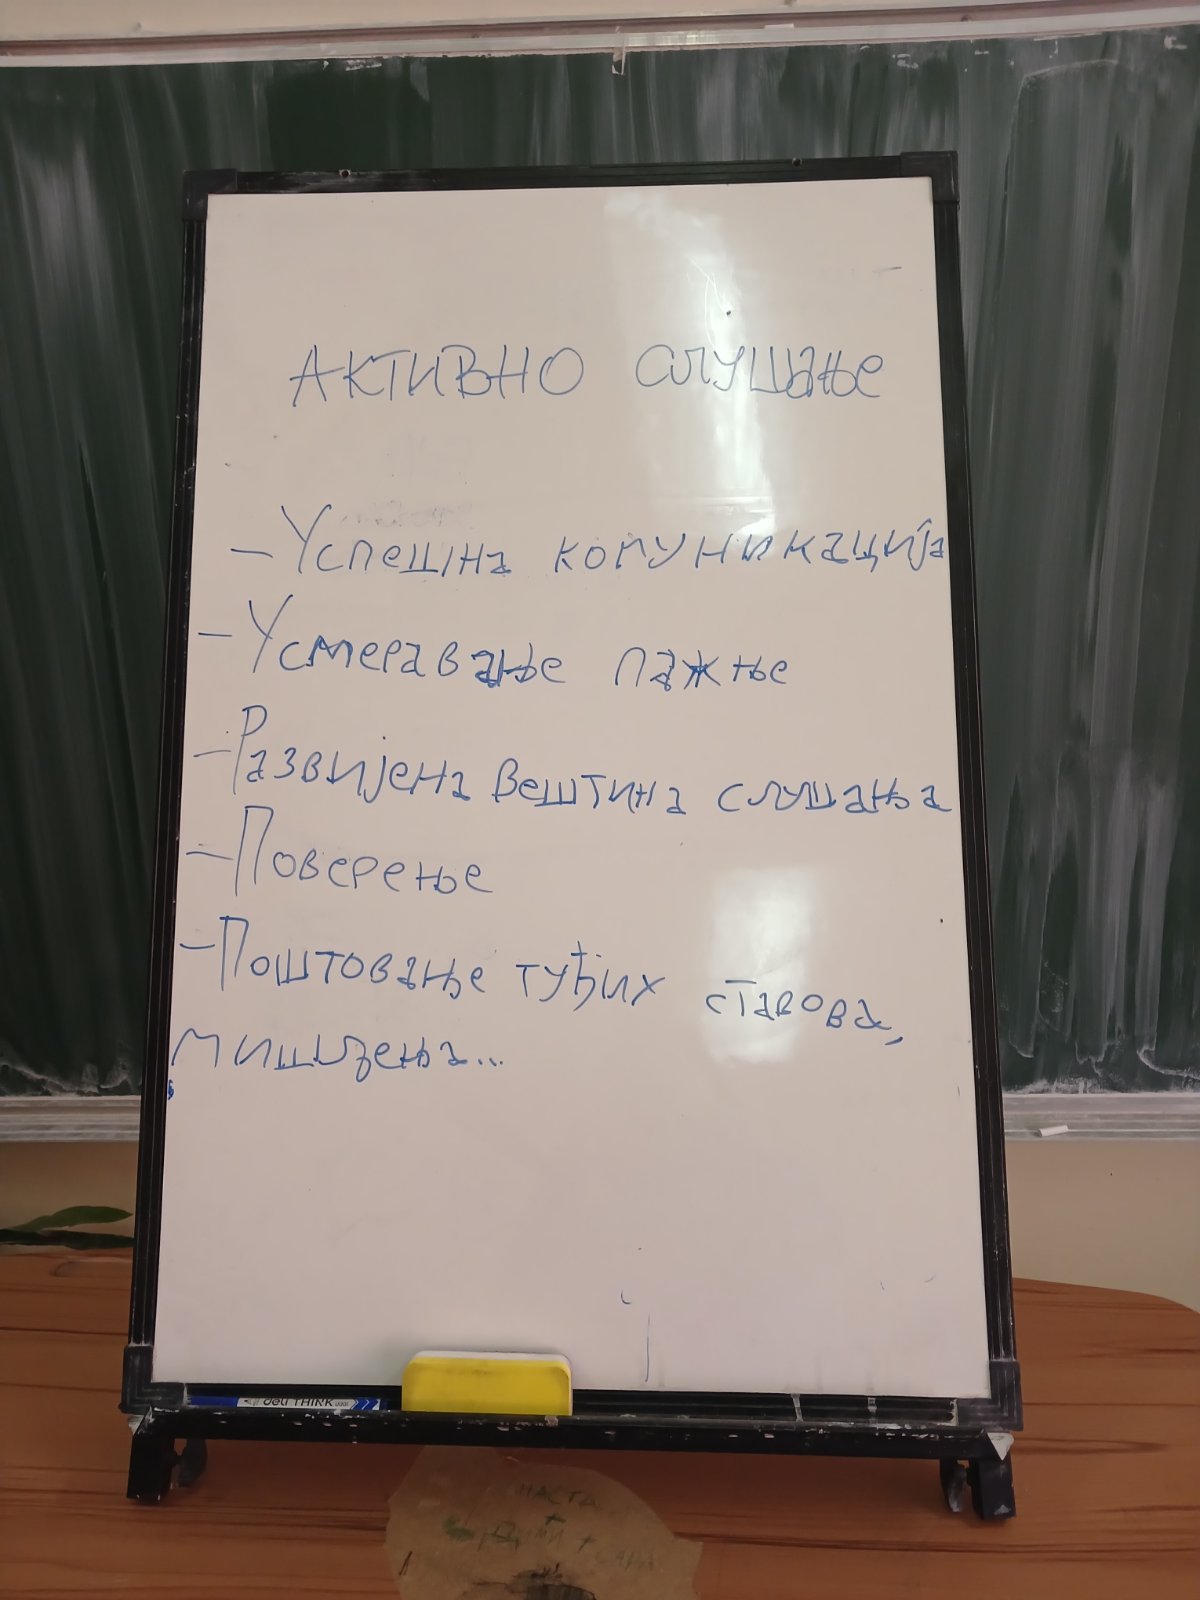 АКТИВНО СЛУШАЊЕ
- Успешна комуникација
- Усмеравање пажње
- Развијена вештина слушања
- Поверење
- Поштовање туђих ставова,
мишљења...
deli THINK
НАСТА
+